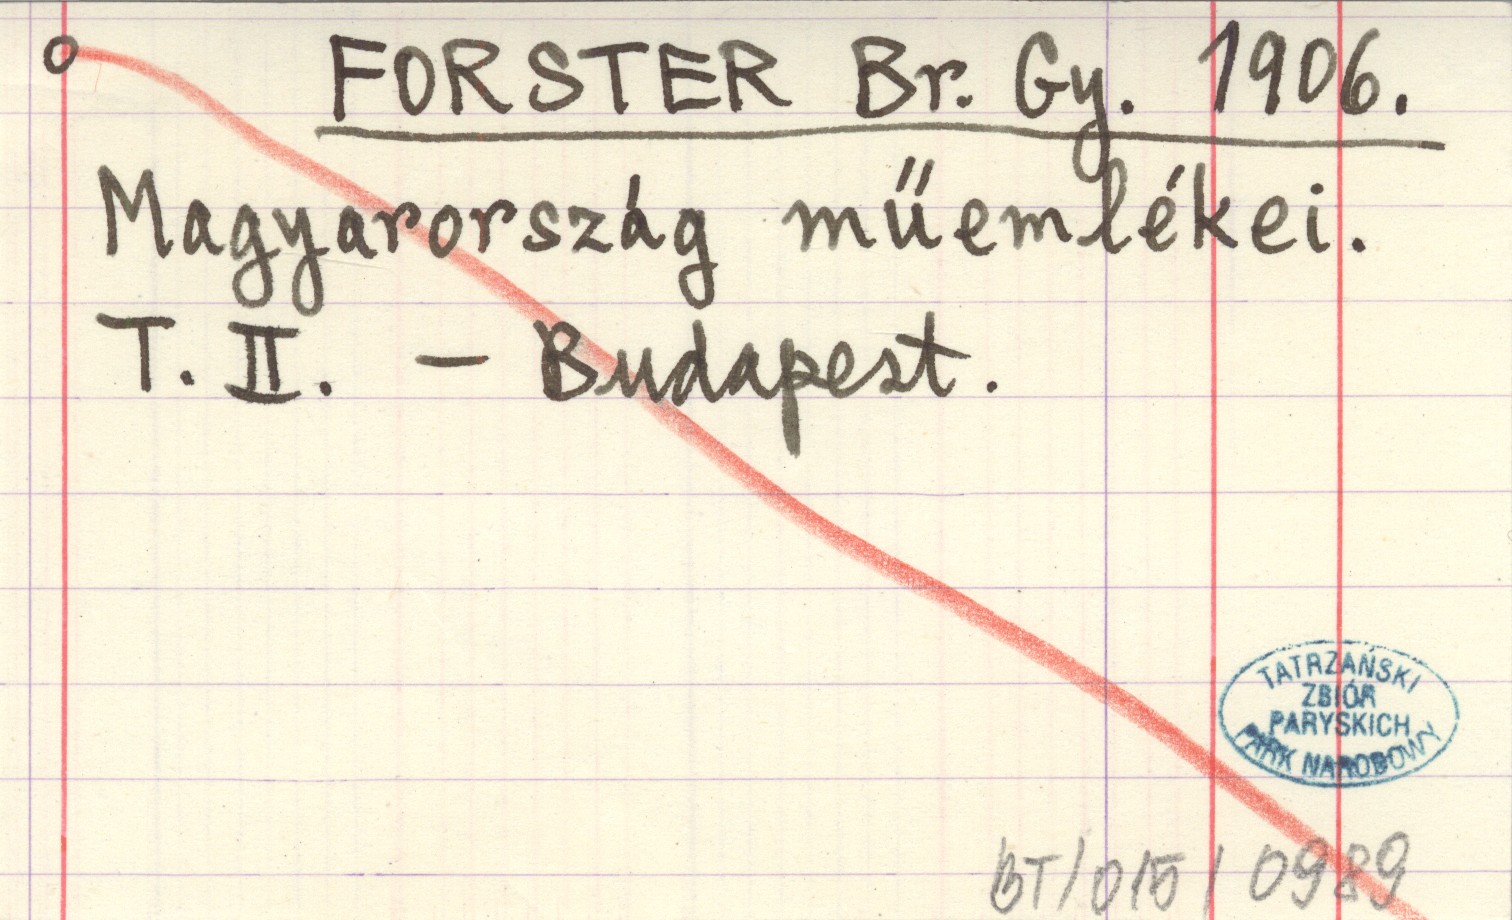 FORSTER Br. Gy. 1906.
Magyarország műemlékei.
T. II. – Budapest.
TATRZAŃSKI
ZBIÓR
PARYSKICH
PARK NARODOWY
BT/015/0989